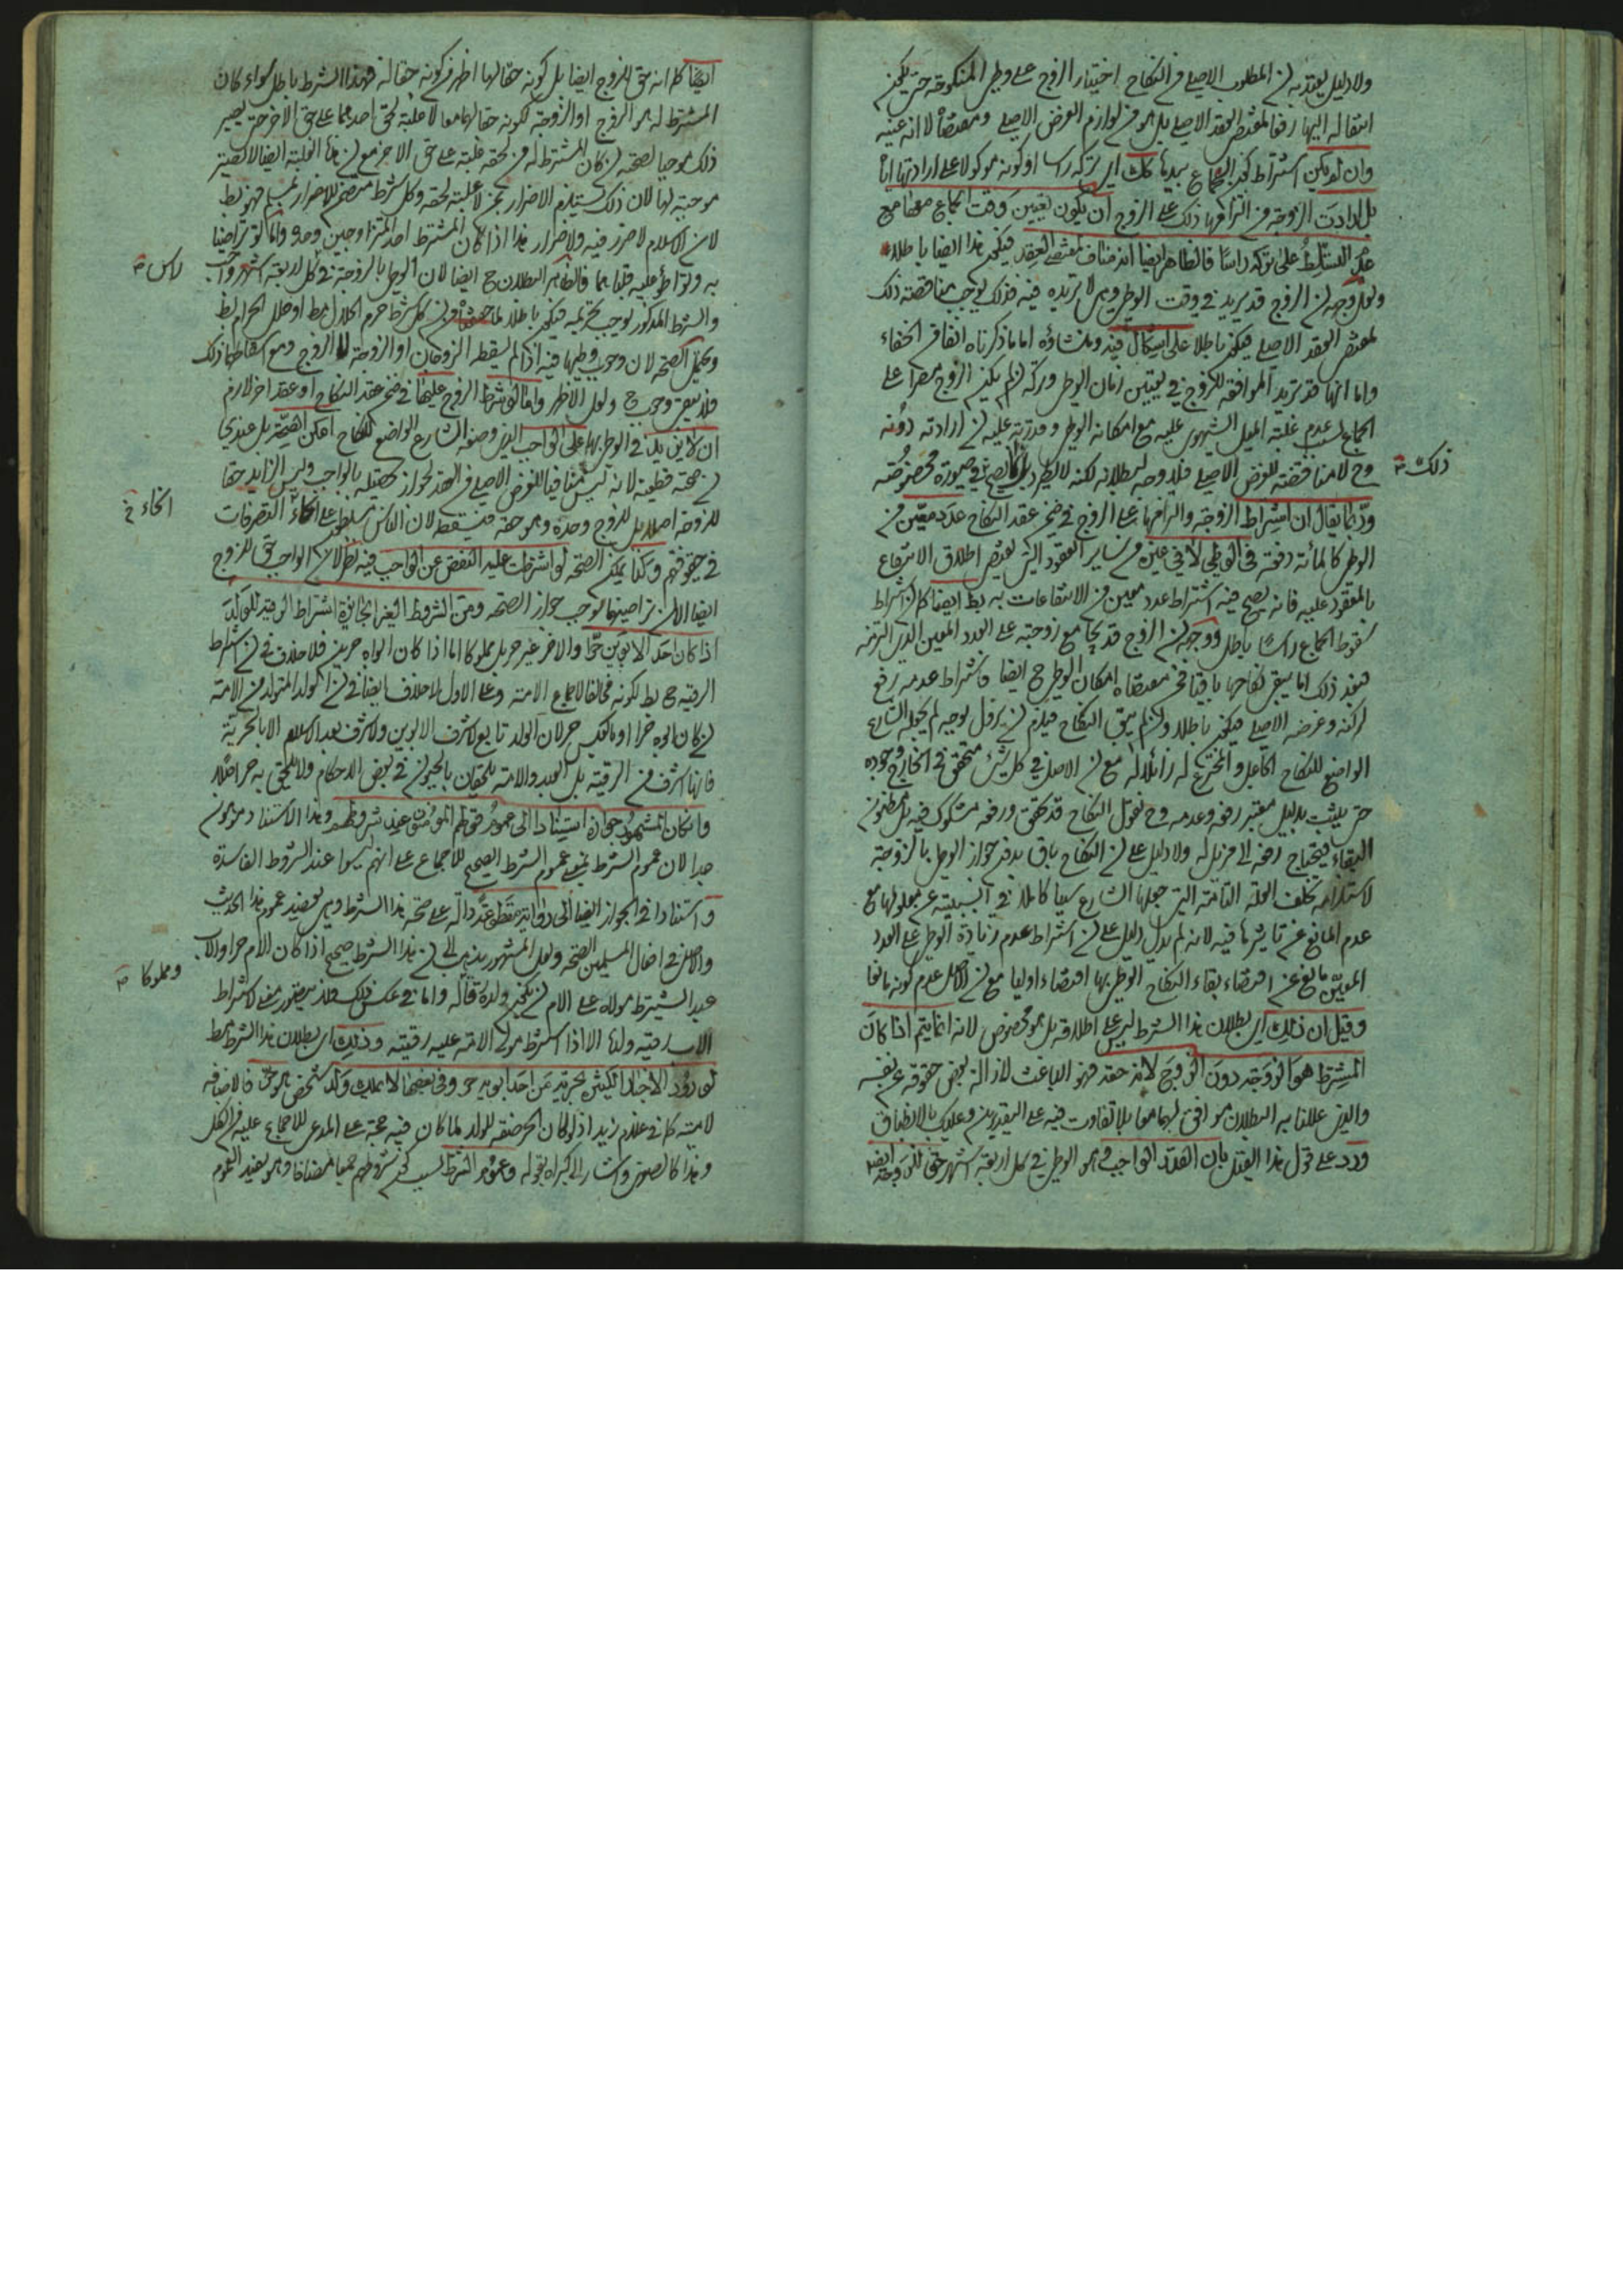 ولا دليل يعتد به لن المطلوب الاصلي في النكاح اختيار الزوج على وطي المنكوحة حتى يكون
انتقاله اليها رفعا لمقتضى العقد الاصلي بل هو من لوازم الغرض الاصلي ومقتضاه لا انه عينه
وان لم يكن اشتراط كون الجماع بيدها كك اي تركه راسا او كونه موكولا على ارادتها اما
بل ارادت الزوجة من التزامها ذلك على الزوج ان يكون تعيين وقت الجماع معها مع
عدم التسلط على تركه راسا فالظاهر ايضا انه مناف لمقتضى العقد فيكون هذا ايضا باطلا
ولعل وجهه لن الزوج قد يريد في وقت الوطي وهي لا تريده فيه فذلك يوجب مناقضته ذلك
لمقتضى العقد الاصلي فيكون باطلا على اشكال فيه ومنشاؤه اما ما ذكرناه انفا من الخفاء
واما انها قد تريد الموافقة للزوج في تعيين زمان الوطي وتركه لن لم يكن الزوج مصرا على
الجماع لسبب عدم غلبة الميل الشهوي عليه مع امكانه الوطي وقدرته عليه لن ارادته دونه
وح لا مناقضته للغرض الاصلي فلا وجه لبطلانه لكنه لا يطرد بل يصح في صورة مخصوصة
ذلك
وربما يقال ان اشتراط الزوجة والتزامها على الزوج في ضمن عقد النكاح عدد معين من
الوطي كالمائة دفعة في الوطي لا في غيره من ساير العقود التي يقتضي اطلاق الانتفاع
بالمعقود عليه فانه يصح فيه اشتراط عدد معين من الانتفاعات به بط ايضا كما لن اشتراط
سقوط الجماع راسا باطل ووجهه لن الزوج قد يجامع زوجته على العدد المعين الذي التزمه
فبعد ذلك اما يبقى نكاحها باقيا فمن مقتضاه امكان الوطي ح ايضا فاشتراط عدمه رفع
لركنه وغرضه الاصلي فيكون باطلا ولن لم يبق النكاح فيلزم لن يزول بوجه لم يجعله الشارع
الواضع للنكاح الجاعل والمخترع له زائلا له مع لن الاصل في كل شئ متحقق في الخارج وجوده
حتى يثبت بدليل معتبر رفعه وعدمه وح نقول النكاح قد تحقق ورفعه مشكوك فيه بل مظنون
البقاء فيحتاج رفعه الى مزيل له ولا دليل على لن النكاح باق بدون جواز الوطي بالزوجة
لاستلزامه تخلف العلة التامة التي جعلها الشارع سببا كاملا في السببية عن معلولها مع
عدم المانع عن تاثيرها فيه لانه لم يدل دليل على لن اشتراط عدم زيادة الوطي على العدد
المعين مانع عن اقتضاء بقاء النكاح الوطي بها اقتضاء اوليا مع لن الاصل عدم كونه مانعا
وقيل ان ذلك اي بطلان هذا الشرط ليس على اطلاقه بل هو مخصوص لانه انما يتم اذا كان
المشترط هو الزوجة دون الزوج لانه حقه فهو الباعث لازالة بعض حقوقه عن نفسه
والذي عللنا به البطلان موافق لهما معا بلا تفاوت فيه على التقديرين وعليك بالانصاف
ورد على قول هذا القيل بان القدر الواجب وهو الوطي في كل اربعة اشهر حق للزوجة ايضا
ايضا كما انه حق الزوج ايضا بل كونه حقا لها اظهر من كونه حقا له فهذا الشرط باطل سواء كان
المشترط له هو الزوج او الزوجة لكونه حقا لهما معا لا غلبة لحق احدهما على حق الاخر حتى يصير
ذلك موجبا لصحته لن كان المشترط له من لحقه غلبة على حق الاخر مع لن هذه الغلبة ايضا لا تصير
موجبة لها لان ذلك يستلزم الاضرار بمن لا غلبة لحقه وكل شرط متضمن للاضرار بمسلم فهو بط
لان الاسلام لا ضرر فيه ولا ضرار هذا اذا كان المشترط احد المتزاوجين وحده واما لو تراضيا
به وتواطؤ عليه قلباهما فالظاهر البطلان ح ايضا لان الوطي بالزوجة في كل اربعة اشهر واجب
راس
والشرط المذكور يوجب تحريمه فيكون باطلا لما حققنا من لن كل شرط حرم الحلال بط او حلل الحرام بط
ويحتمل الصحة لان وجوب وطيها فيه اذا لم يسقطه الزوجان او الزوجة الزوج ومع اسقاطهما ذلك
فلا يبقى وجوب ح ولعل الاظهر واما لو شرط الزوج عليها في ضمن عقد النكاح او عقد اخر لازم
ان لا يزيد في الوطي بها على الواجب الذي وضعه الشارع الواضع للنكاح امكن الصحة بل عندي
لن صحته قطعية لانه ليس منافيا للغرض الاصلي من العقد لجواز تحصيله بالواجب وليس الزايد حقا
للزوجة اصلا بل للزوج وحده وهو حقه فيسقطه لان الناس مسلطون على انحاء التصرفات
انحاء خ
في حقوقهم وكذا يمكن الصحة لو اشترطت عليه النقص عن الواجب فيه نظر لان الواجب حق للزوج
ايضا الا لن تراضيهما يوجب جواز الصحة ومن الشروط الغير الجايزة اشتراط الرقية للولد
اذا كان احد الابوين حرا والاخر غير حر بل مملوكا اما اذا كان ابواه حرين فلا خلاف في لن اشتراط
الرقية ح بط لكونه مخالفا لاجماع الامة وعلى الاول لا خلاف ايضا في لن الولد المتولد من الامة
لن كان ابوه حرا او بالعكس حر لان الولد تابع لاشرف الابوين ولا شرف بعد الاسلام الا بالحرية
فانها اشرف من الرقية بل العبد والامة يلحقان بالحيوان في بعض الاحكام ولا يلحق به حر اصلا
وان كان المشهور جوازه استنادا الى عموم قولهم المؤمنون عند شروطهم وهذا الاستناد موهون
جدا لان عموم الشرط يعني عموم الشرط الصحيح للاجماع على انهم ليسوا عند الشروط الفاسدة
واستنادا في الجواز ايضا الى رواية مقطوعة دالة على صحة هذا الشرط وهي تعضيد عموم هذا الحديث
والاصل في افعال المسلمين الصحة ولعل المشهور يذهب الى لن هذا الشرط صحيح اذا كان الام حرا والاب
عبدا يشترط مولاه على الام لن يكون ولده رقا له واما في عكس ذلك فلا يتصور معنى لاشتراط
ومملوكا
الاب رقية ولدها الا اذا اشترط مولى الامة عليه رقيته وذلك اي بطلان هذا الشرط بط
لورود الاخبار الكثيرة بحرية من احد ابويه حر وفي بعضها لا يملك ولد شخص هو حر فالاضافة
لامية كما في غلام زيد اذ لو كان الحر صفة للولد لما كان فيه حجة على المدعى للاجماع عليه من الكل
وهذا كالصغرى واشار الى كبراه بقوله وعموم الشرط لسبب كون شروطهم جمعا مضافا وهو يفيد العموم